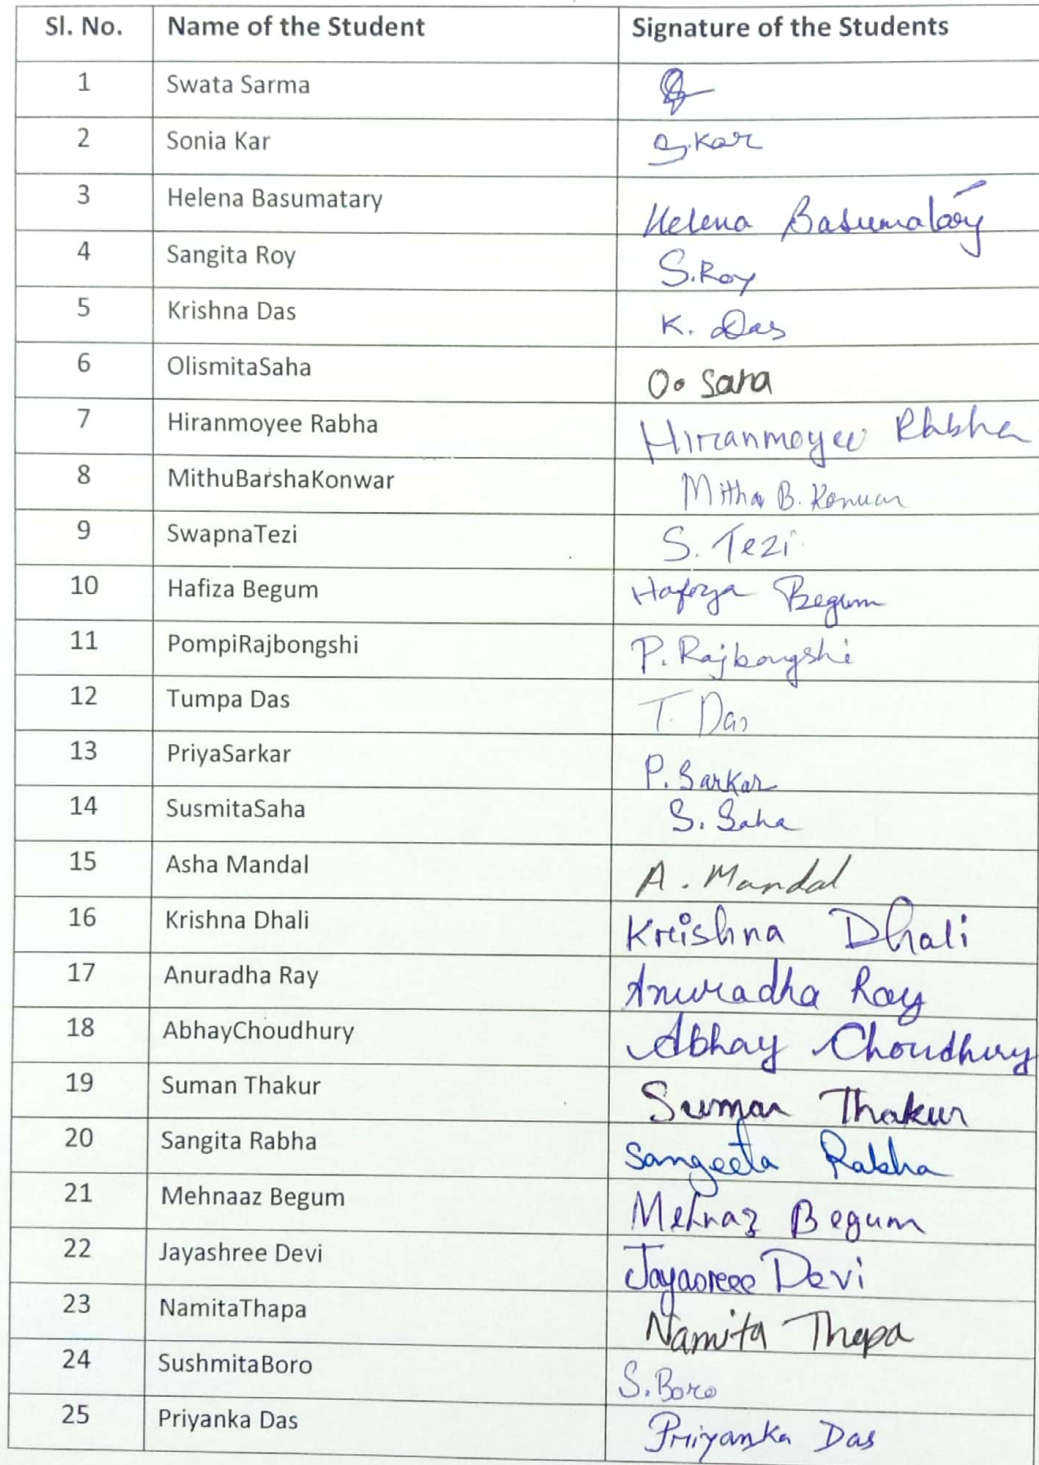 Sl. No. Name of the Student Signature of the Students
1 Swata Sarma
2 Sonia Kar S.Kar
3 Helena Basumatary Helena Basumatary
4 Sangita Roy S.Roy
5 Krishna Das K. Das
6 OlismitaSaha O. Saha
7 Hiranmoyee Rabha Hiranmoyee Rabha
8 MithuBarshaKonwar Mithu B. Konwar
9 SwapnaTezi S. Tezi
10 Hafiza Begum Hafiza Begum
11 PompiRajbongshi P. Rajbongshi
12 Tumpa Das T. Das
13 PriyaSarkar P. Sarkar
14 SusmitaSaha S. Saha
15 Asha Mandal A. Mandal
16 Krishna Dhali Krishna Dhali
17 Anuradha Ray Anuradha Ray
18 AbhayChoudhury Abhay Choudhury
19 Suman Thakur Suman Thakur
20 Sangita Rabha Sangeeta Rabha
21 Mehnaaz Begum Mehnaz Begum
22 Jayashree Devi Jayasreee Devi
23 NamitaThapa Namita Thapa
24 SushmitaBoro S.Boro
25 Priyanka Das Priyanka Das